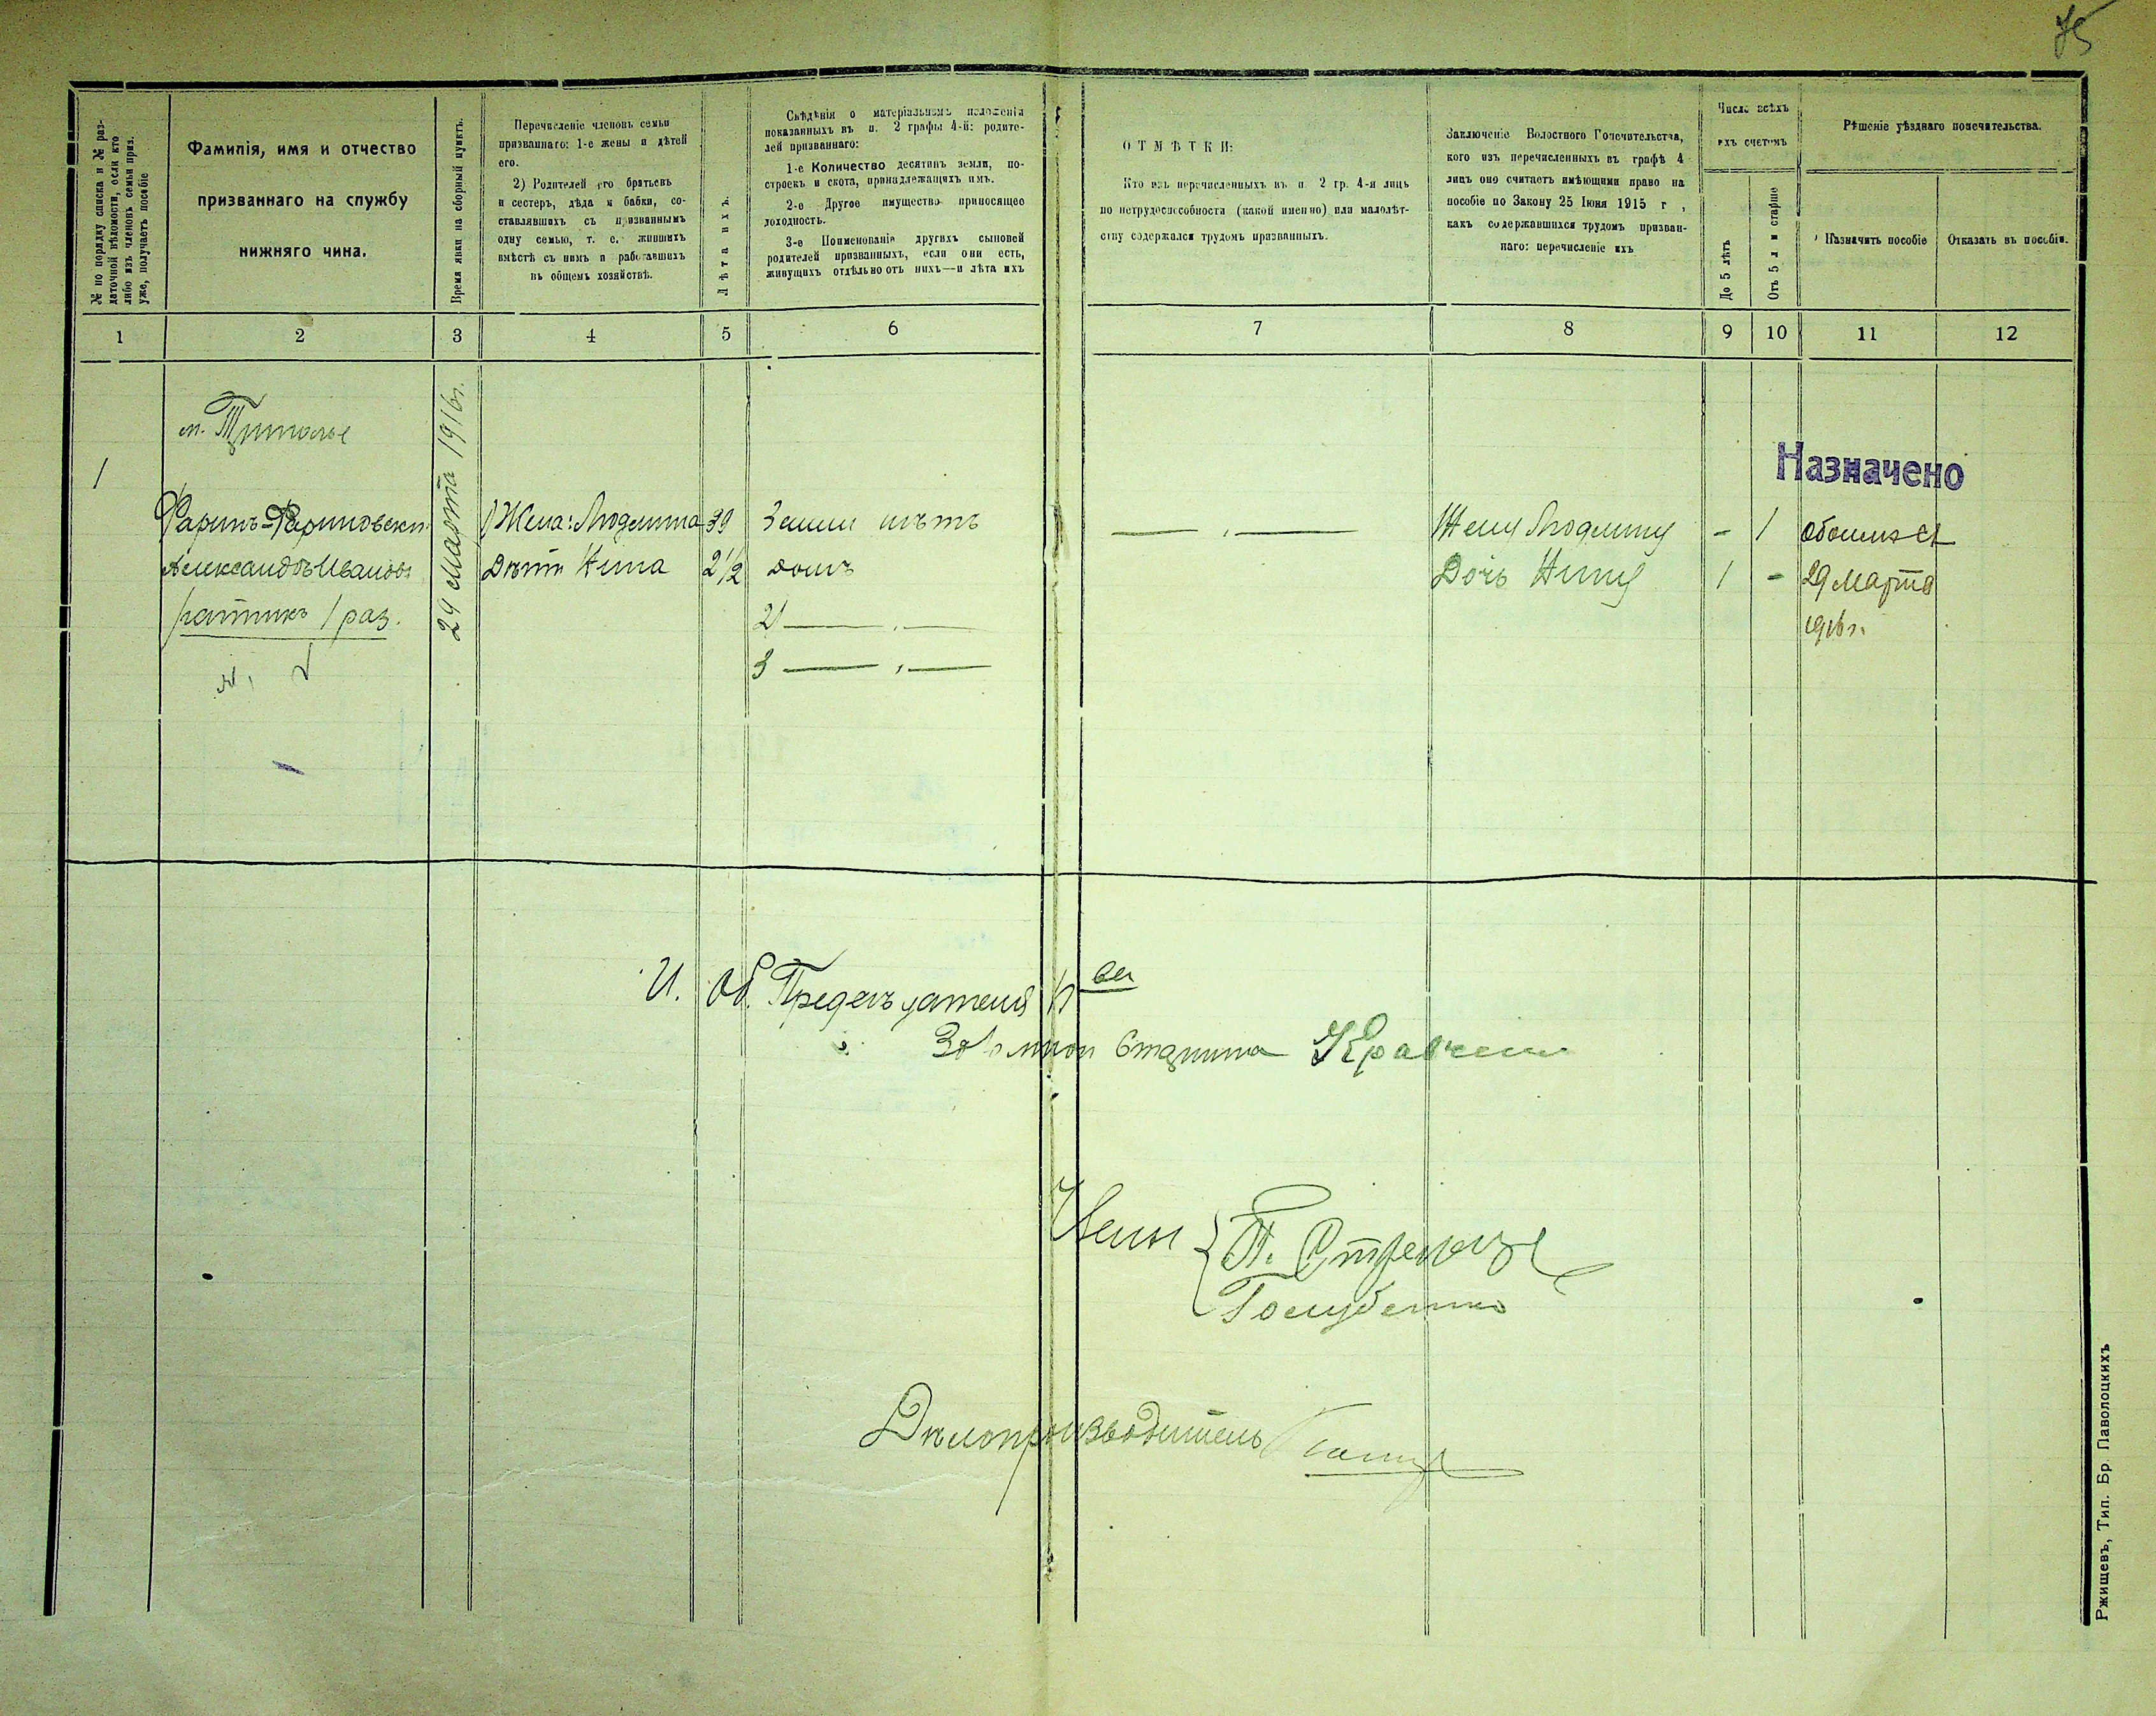 75
№ по порядку списка и № раз-
даточной вѣдомости, если кто
либо изъ членовъ семьи приз.
уже, получаетъ пособіе
Фамилія, имя и отчество
призваннаго на службу
нижняго чина.
Время явки на сборный пунктъ.
Перечисленіе членовъ семьи
призваннаго: 1-е жены и дѣтей
его.
2) Родителей его братьевъ
и сестеръ, дѣда и бабки, со-
ставлявшихъ съ призваннымъ
одну семью, т. е. жившихъ
вмѣстѣ съ нимъ и работавшихъ
въ общемъ хозяйствѣ.
Лѣта ихъ.
Свѣдѣнія о матеріальномъ положеніи
показанныхъ въ п. 2 графы 4-й: родите-
лей призваннаго:
1-е Количество десятинъ земли, по-
строекъ и скота, принадлежащихъ имъ.
2-е Другое имущество приносящее
доходность.
3-е Поименованіе другихъ сыновей
родителей призванныхъ, если они есть,
живущихъ отдѣльно отъ нихъ—и лѣта ихъ
ОТМѢТКИ:
Кто изъ перечисленныхъ въ п 2 гр. 4-я лицъ
по нетрудоспособности (какой именно) или малолѣт-
ству содержался трудомъ призванныхъ.
Заключеніе Волостного Попечительства,
кого изъ перечисленныхъ въ графѣ 4
лицъ оно считаетъ имѣющими право на
пособіе по Закону 25 Іюня 1915 г ,
какъ содержавшихся трудомъ призван-
наго: перечисленіе ихъ
Число всѣхъ
ихъ счетомъ
До 5 лѣтъ
Отъ 5 л и старше
Рѣшеніе уѣзднаго попечительства.
Назначить пособіе
Отказать въ пособіи.
1 2 3 4 5 6 7 8 9 10 11 12
м. Триполье
1
Фаринъ-Фариновскій
Александръ Иванов
ратникъ 1 раз.
29 Марта 1916г.
1) Жена: Людмила 39
Дѣти Нина 2 1/2
Земли нѣтъ
домъ
2) — „ —
3 — „ —
— „ —
Жену Людмилу - 1
Дочь Нину 1 -
Назначено
29 Марта
1916 г.
И. Об. Предсѣдателя П ва
Старшина Кравченко
Члены
П. Стрелец
Голубенко
Дѣлопроизводитель
Ржищевъ, Тип. Бр. Паволоцкихъ